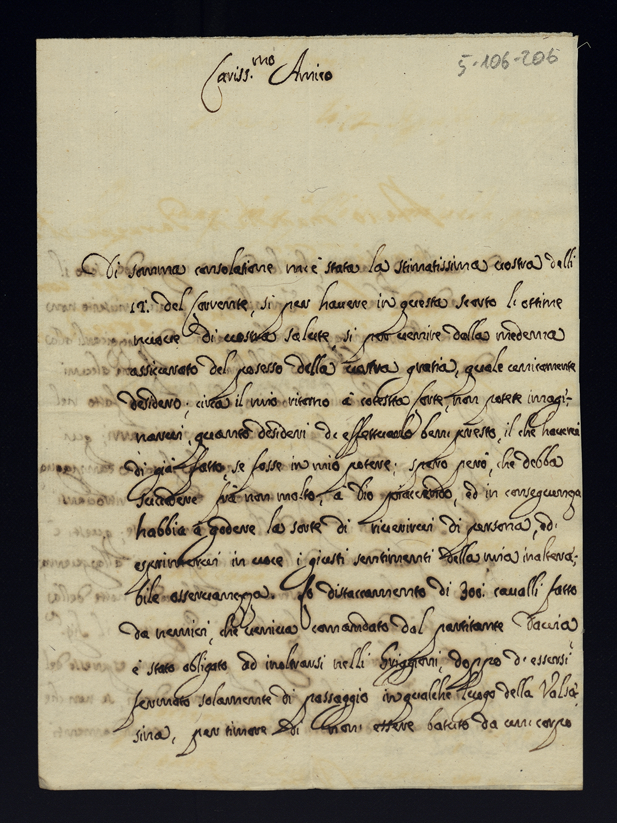 5-106-206
Cariss.mo Amico
Di somma consolatione m'è stata la stimatissima vostra delli
17. del corrente, si per havere in questa scorto l'ottime
nuove di vostra salute, si per venire dalla medema
assicurato del posesso della vostra gratia, quale unicamente
desidero; circa il mio ritorno à cotesta Corte, non potete imagi-
narvi, quanto desideri di effettuarlo ben presto, il che haverei
di già fatto, se fosse in mio potere; spero però, che debba
succedere frà non molto, à Dio piacendo, ed in conseguenza
habbia à godere la sorte di riverirvi di persona, ed
esprimervi in voce i giusti sentimenti della mia inaltera-
bile osservanza. Jl distaccamento di 300. cavalli fatto
da nemici, che veniva comandato dal partitante Davia
è stato obligato ad inoltrarsi nelli Griggioni, doppo d'essersi
fermato solamente di passaggio in qualche luogo della Valsa-
sina, per timore di non essere batuto da un corpo